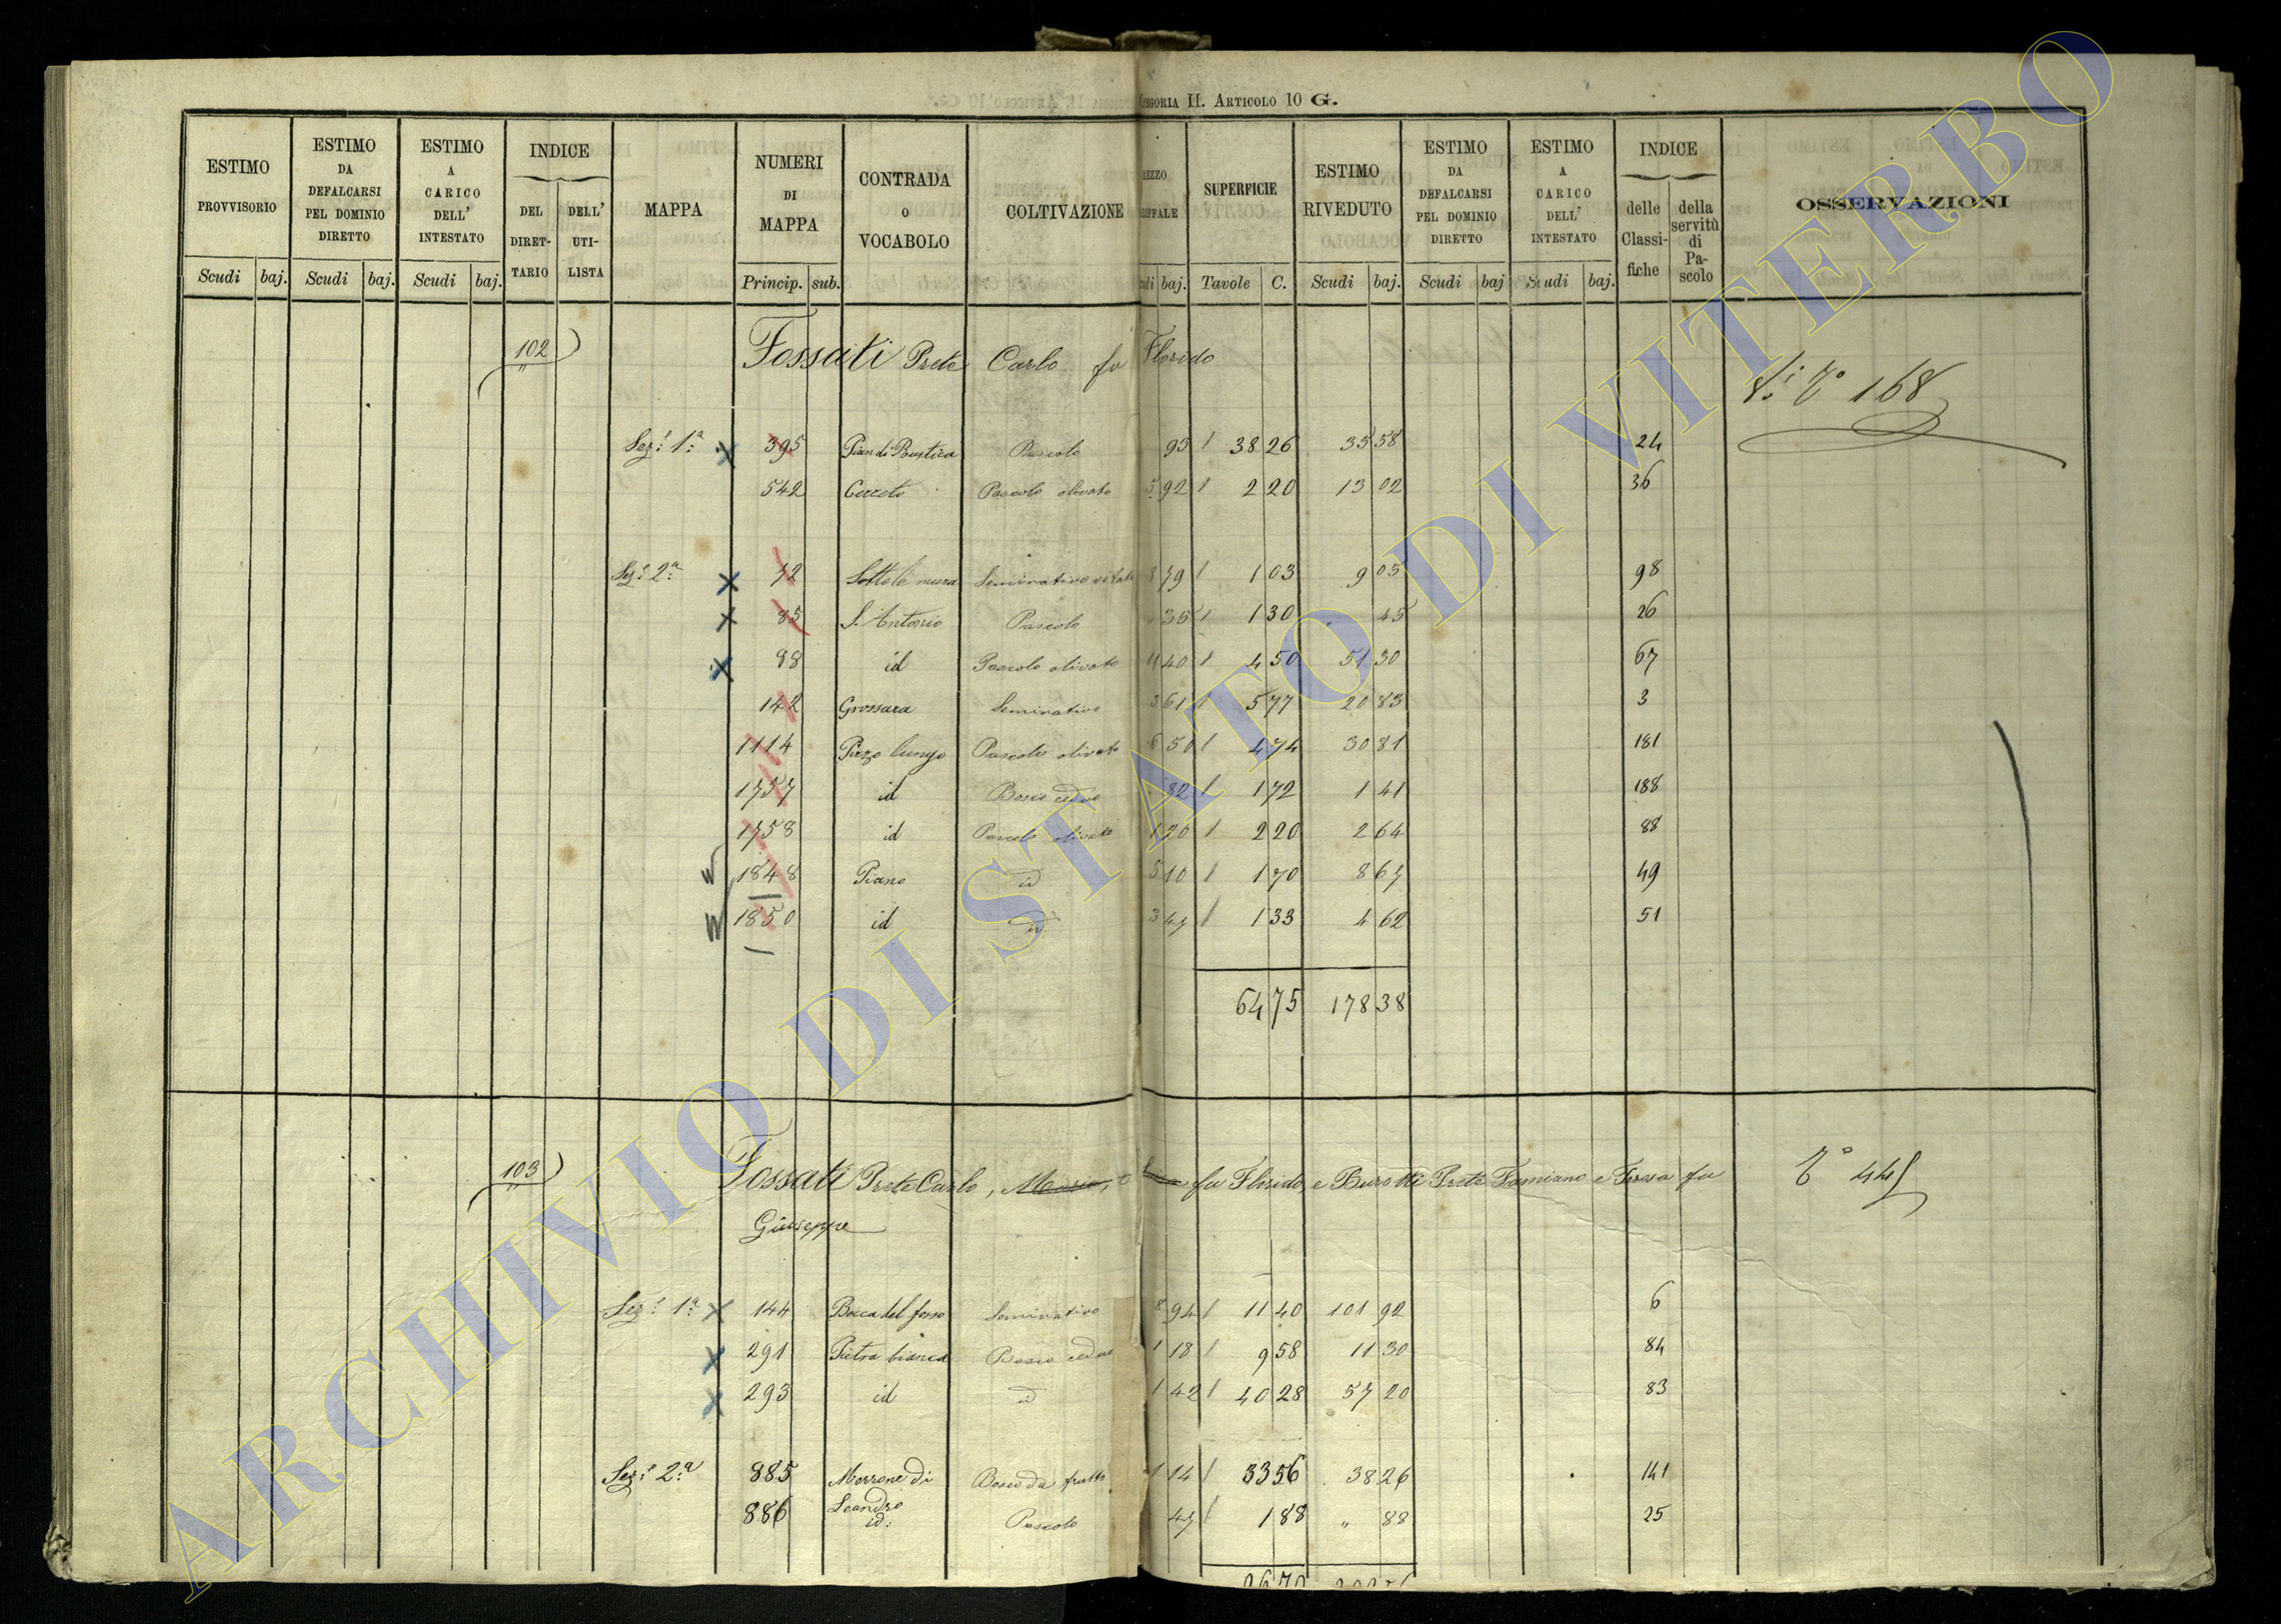 Categoria II. Articolo 10 G.
ESTIMO PROVVISORIO Scudi baj.
ESTIMO DA DEFALCARSI PEL DOMINIO DIRETTO Scudi baj.
ESTIMO A CARICO DELL' INTESTATO Scudi baj.
INDICE DEL DIRET-TARIO DELL' UTI-LISTA
MAPPA
NUMERI DI MAPPA Princip. sub.
CONTRADA O VOCABOLO
COLTIVAZIONE
SUPERFICIE Tavole C.
ESTIMO RIVEDUTO Scudi baj.
ESTIMO DA DEFALCARSI PEL DOMINIO DIRETTO Scudi baj
ESTIMO A CARICO DELL' INTESTATO Scudi baj.
INDICE delle Classi-fiche della servitù di Pa-scolo
OSSERVAZIONI
102 Fossati Prete Carlo fu Florido
168
Sez. 1ª 395 Pascolo 93 38 26 35 58 24
542 Cerreto Pascolo olivato 5 92 2 20 13 02 36
Sez. 2ª 72 Sotto le mura Seminativo vitato 8 79 1 03 9 05 98
85 S. Antonio Pascolo 35 1 30 45 26
98 id Pascolo olivato 11 40 4 50 51 30 67
142 Grossara Seminativo 3 61 5 77 20 83 3
1114 Pizzo lungo Pascolo olivato 6 50 4 74 30 81 181
1757 id Bosco ceduo 82 1 72 1 41 188
1758 id Pascolo olivato 1 20 2 20 2 64 88
1848 Piano id 5 10 1 70 8 67 49
1850 id id 3 47 1 33 4 62 51
64 75 178 38
103 Fossati Prete Carlo, Maria, e fu Florido, e Burotti Prete Famiano e Teresa fu
Giuseppe
Sez. 1ª 144 Bocca del fosso Seminativo 8 94 11 40 101 92 6
291 Pietra bianca Bosco ceduo 1 18 9 58 11 30 84
293 id id 1 42 40 28 57 20 83
Sez. 2ª 885 Morrone di Leandro Bosco da frutto 1 14 33 56 38 26 141
886 id: Pascolo 47 1 88 " 88 25
ARCHIVIO DI STATO DI VITERBO